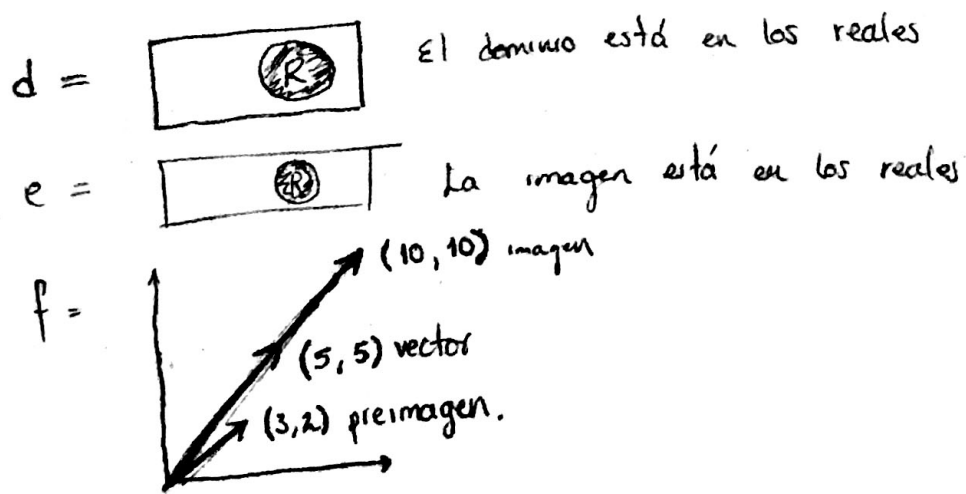 d = R El dominio está en los reales
e = R La imagen está en los reales
f = (10, 10) imagen
(5, 5) vector
(3,2) preimagen.